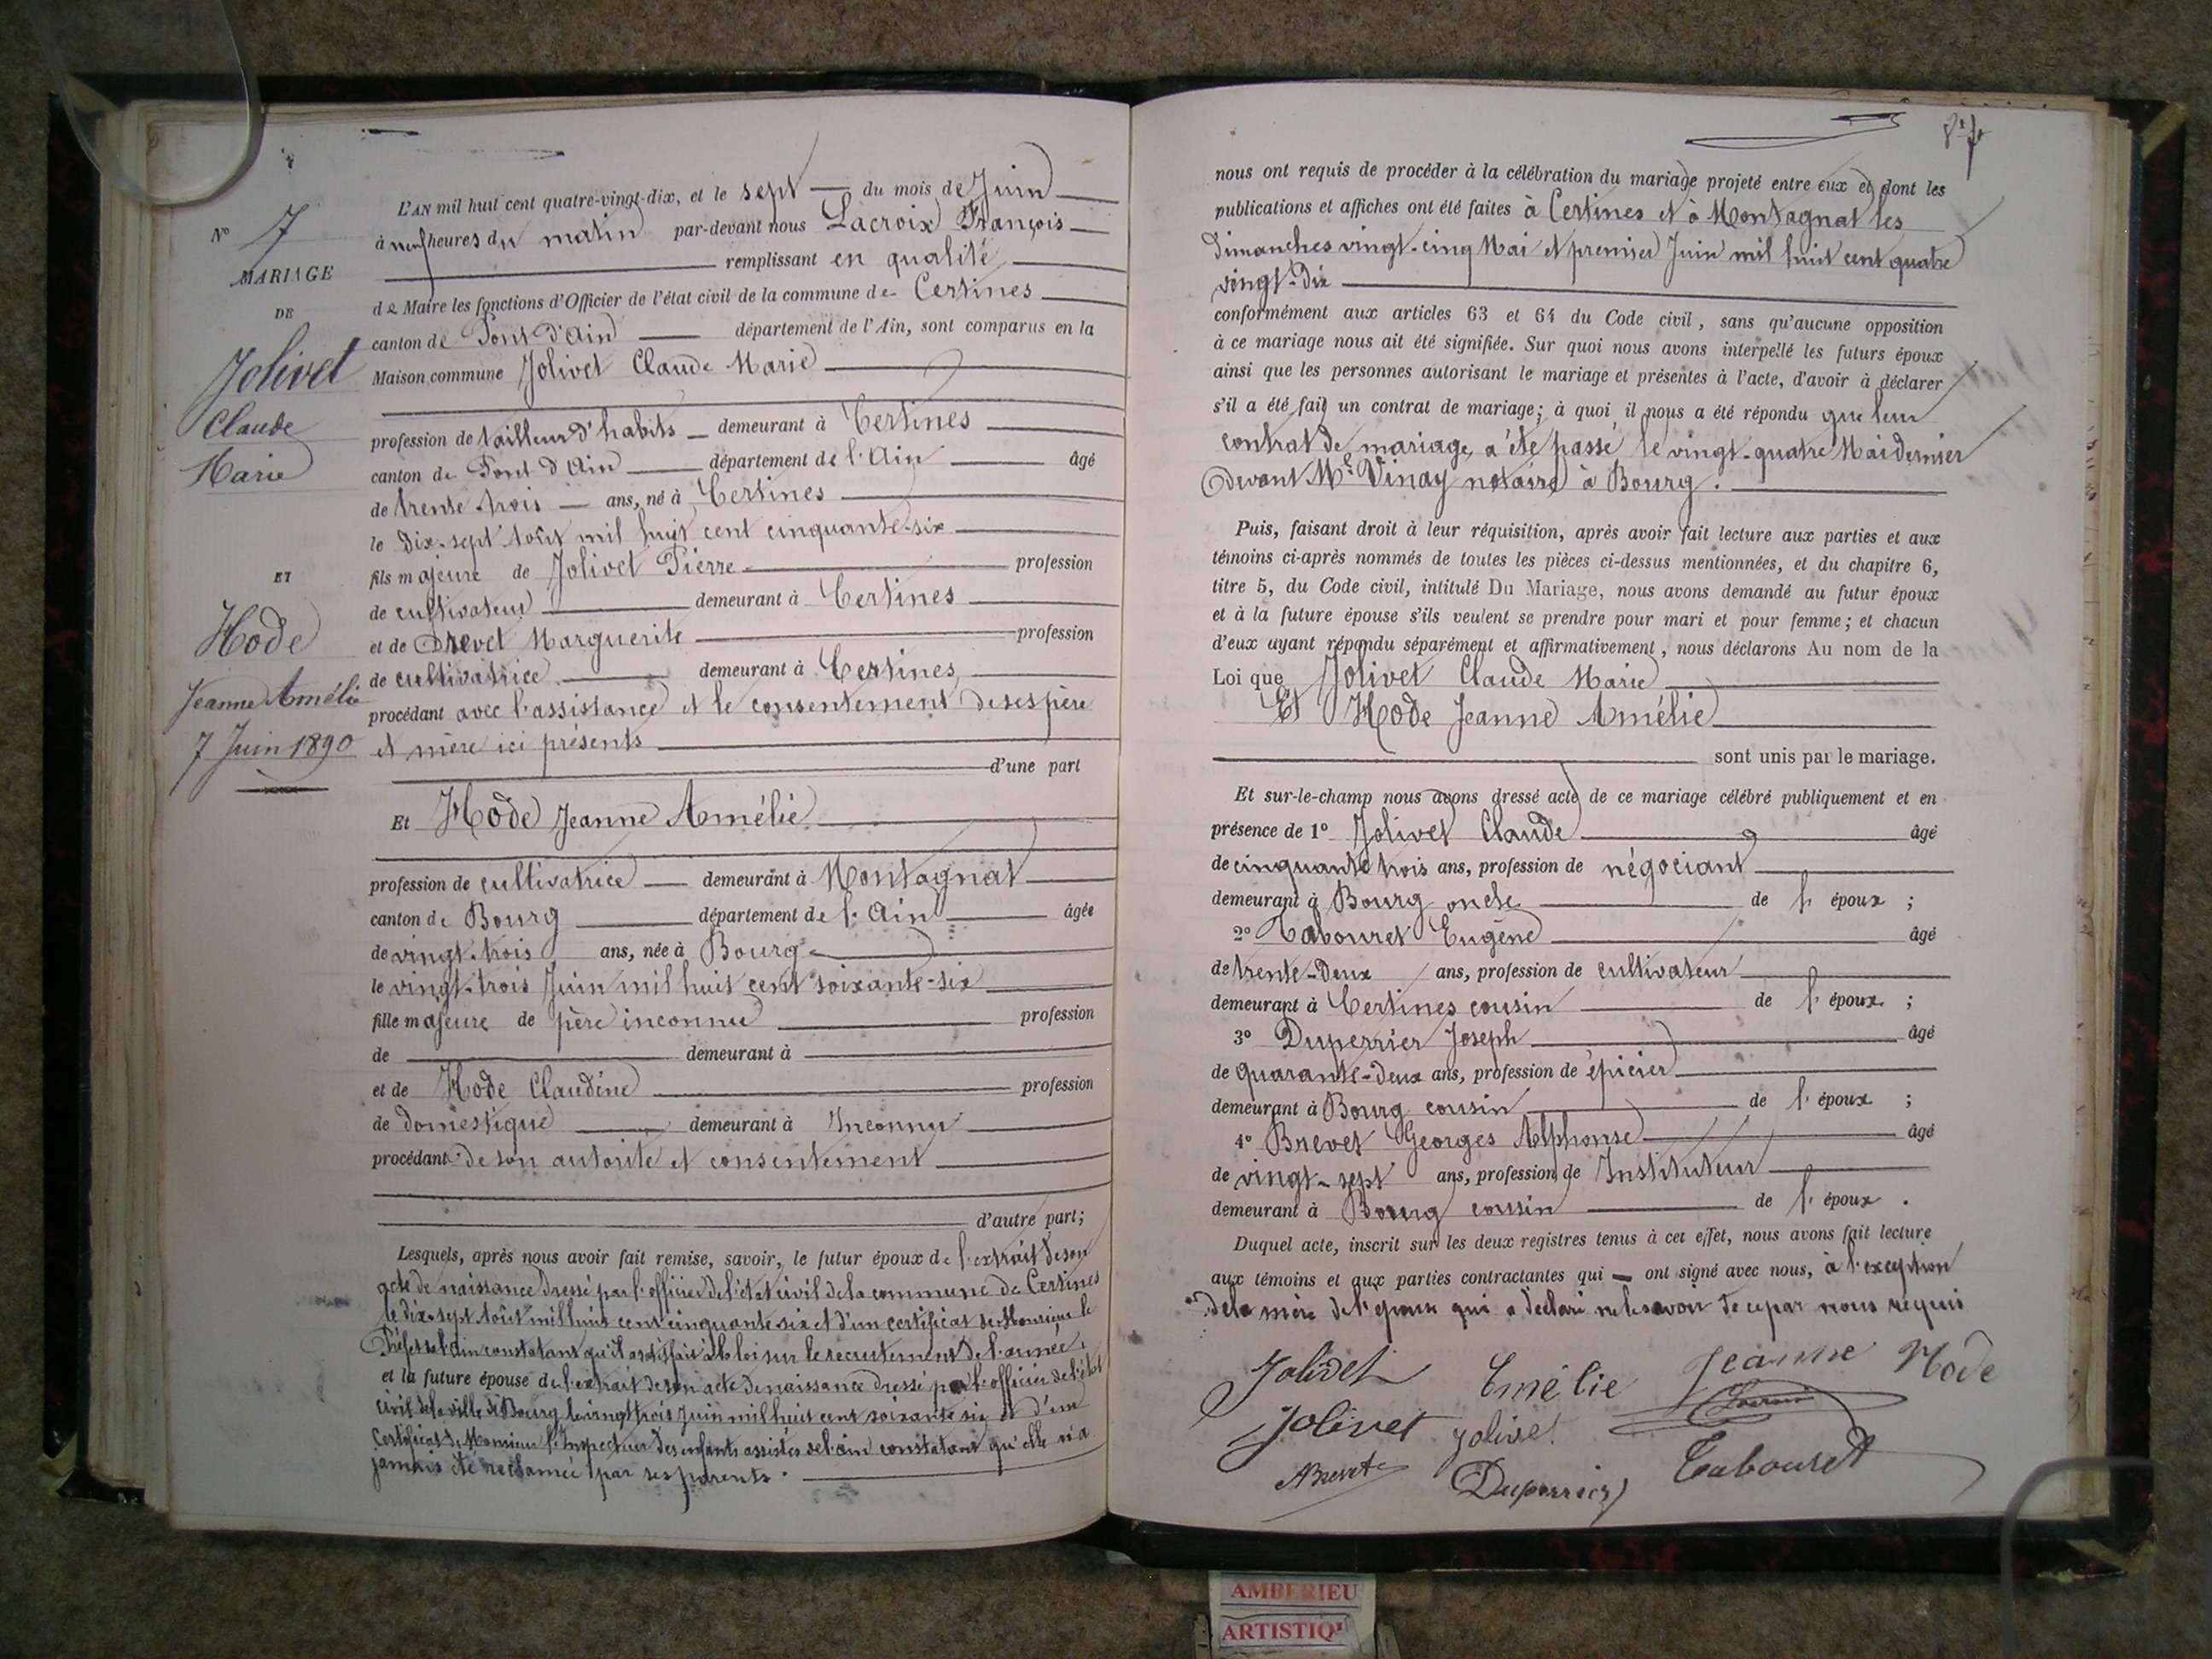 N° 7
MARIAGE
DE
Jolivet
Claude
Marie
ET
Hode
Jeanne Amélie
7 Juin 1890
L'AN mil huit cent quatre-vingt-dix, et le sept du mois de Juin
à neuf heures du matin par-devant nous Lacroix François
remplissant en qualité
de Maire les fonctions d'Officier de l'état civil de la commune de Certines
canton de Pont d'Ain département de l'Ain, sont comparus en la
Maison commune Jolivet Claude Marie
profession de tailleur d'habits demeurant à Certines
canton de Pont d'Ain département de l'Ain âgé
de trente-trois ans, né à Certines
le dix-sept Août mil huit cent cinquante-six
fils majeure de Jolivet Pierre profession
de cultivateur demeurant à Certines
et de Brevet Marguerite profession
de cultivatrice demeurant à Certines
procédant avec l'assistance et le consentement de ses père
et mère ici présents
d'une part
Et Hode Jeanne Amélie
profession de cultivatrice demeurant à Montagnat
canton de Bourg département de l'Ain âgée
de vingt-trois ans, née à Bourg
le vingt-trois Juin mil huit cent soixante-six
fille majeure de père inconnu profession
de demeurant à
et de Hode Claudine profession
de domestique demeurant à Inconnu
procédant de son autorité et consentement
d'autre part;
Lesquels, après nous avoir fait remise, savoir, le futur époux de l'extrait de son
acte de naissance dressé par l'officier de l'état civil de la commune de Certines
le dix-sept Août mil huit cent cinquante six et d'un certificat de Monsieur le
Préfet de l'Ain constatant qu'il a satisfait à la loi sur le recrutement de l'année,
et la future épouse de l'extrait de son acte de naissance dressé par l'officier de l'état
civil de la ville de Bourg le vingt trois Juin mil huit cent soixante six et d'un
certificat de Monsieur l'Inspecteur des enfants assistés de l'Ain constatant qu'elle n'a
jamais été réclamée par ses parents.
nous ont requis de procéder à la célébration du mariage projeté entre eux et dont les
publications et affiches ont été faites à Certines et à Montagnat les
dimanches vingt-cinq Mai et premier Juin mil huit cent quatre
vingt-dix
conformément aux articles 63 et 64 du Code civil, sans qu'aucune opposition
à ce mariage nous ait été signifiée. Sur quoi nous avons interpellé les futurs époux
ainsi que les personnes autorisant le mariage et présentes à l'acte, d'avoir à déclarer
s'il a été fait un contrat de mariage; à quoi il nous a été répondu que leur
contrat de mariage a été passé le vingt-quatre Mai dernier
devant Me Vinay notaire à Bourg.
Puis, faisant droit à leur réquisition, après avoir fait lecture aux parties et aux
témoins ci-après nommés de toutes les pièces ci-dessus mentionnées, et du chapitre 6,
titre 5, du Code civil, intitulé Du Mariage, nous avons demandé au futur époux
et à la future épouse s'ils veulent se prendre pour mari et pour femme; et chacun
d'eux ayant répondu séparément et affirmativement, nous déclarons Au nom de la
Loi que Jolivet Claude Marie
Et Hode Jeanne Amélie
sont unis par le mariage.
Et sur-le-champ nous avons dressé acte de ce mariage célébré publiquement et en
présence de 1° Jolivet Claude âgé
de cinquante trois ans, profession de négociant
demeurant à Bourg oncle de l'époux ;
2° Tabouret Eugène âgé
de trente-deux ans, profession de cultivateur
demeurant à Certines cousin de l'époux ;
3° Duperrier Joseph âgé
de quarante-deux ans, profession de épicier
demeurant à Bourg cousin de l'époux ;
4° Brevet Georges Alphonse âgé
de vingt-sept ans, profession de Instituteur
demeurant à Bourg cousin de l'époux .
Duquel acte, inscrit sur les deux registres tenus à cet effet, nous avons fait lecture
aux témoins et aux parties contractantes qui ont signé avec nous, à l'exception
de la mère de l'époux qui a déclaré ne le savoir de ce par nous requis
Jolivet Emélie Jeanne Hode
Jolivet Jolivet Lacroix
ABrevet Duperrier Tabouret
AMBERIEU
ARTISTIQ